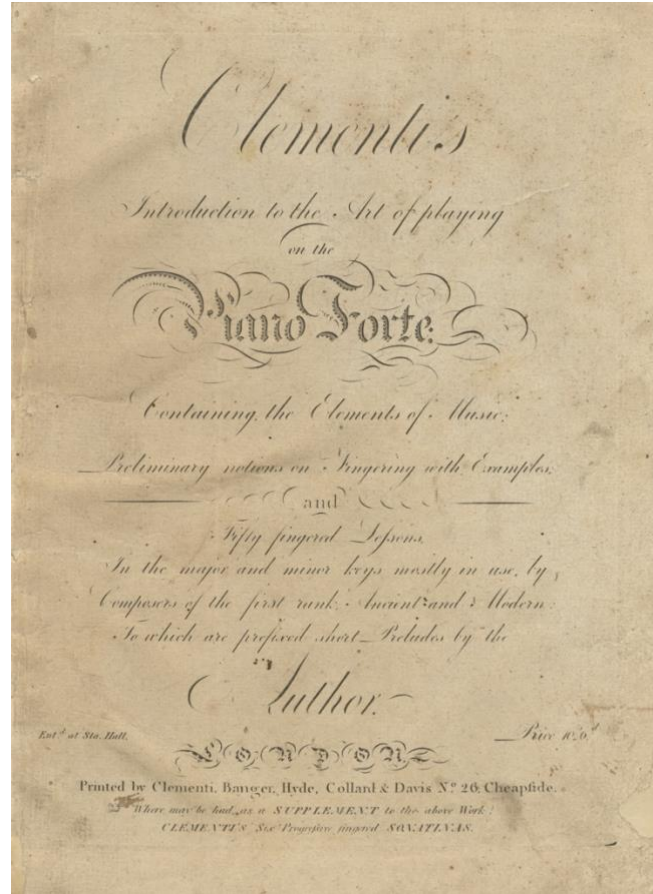 Clementi's
Introduction to the Art of playing
on the
Piano Forte:
Containing, the Elements of Music;
Preliminary notions on Fingering with Examples;
and
Fifty fingered Lessons,
In the major and minor keys mostly in use, by
Composers of the first rank, Ancient and Modern:
To which are prefixed short Preludes by the
Author.
Ent.d at Sta. Hall.
Price 10,,6.d
LONDON
Printed by Clementi, Banger, Hyde, Collard & Davis No. 26, Cheapside.
Where may be had, as a SUPPLEMENT to the above Work;
CLEMENTI'S Six Progressive fingered SONATINAS.